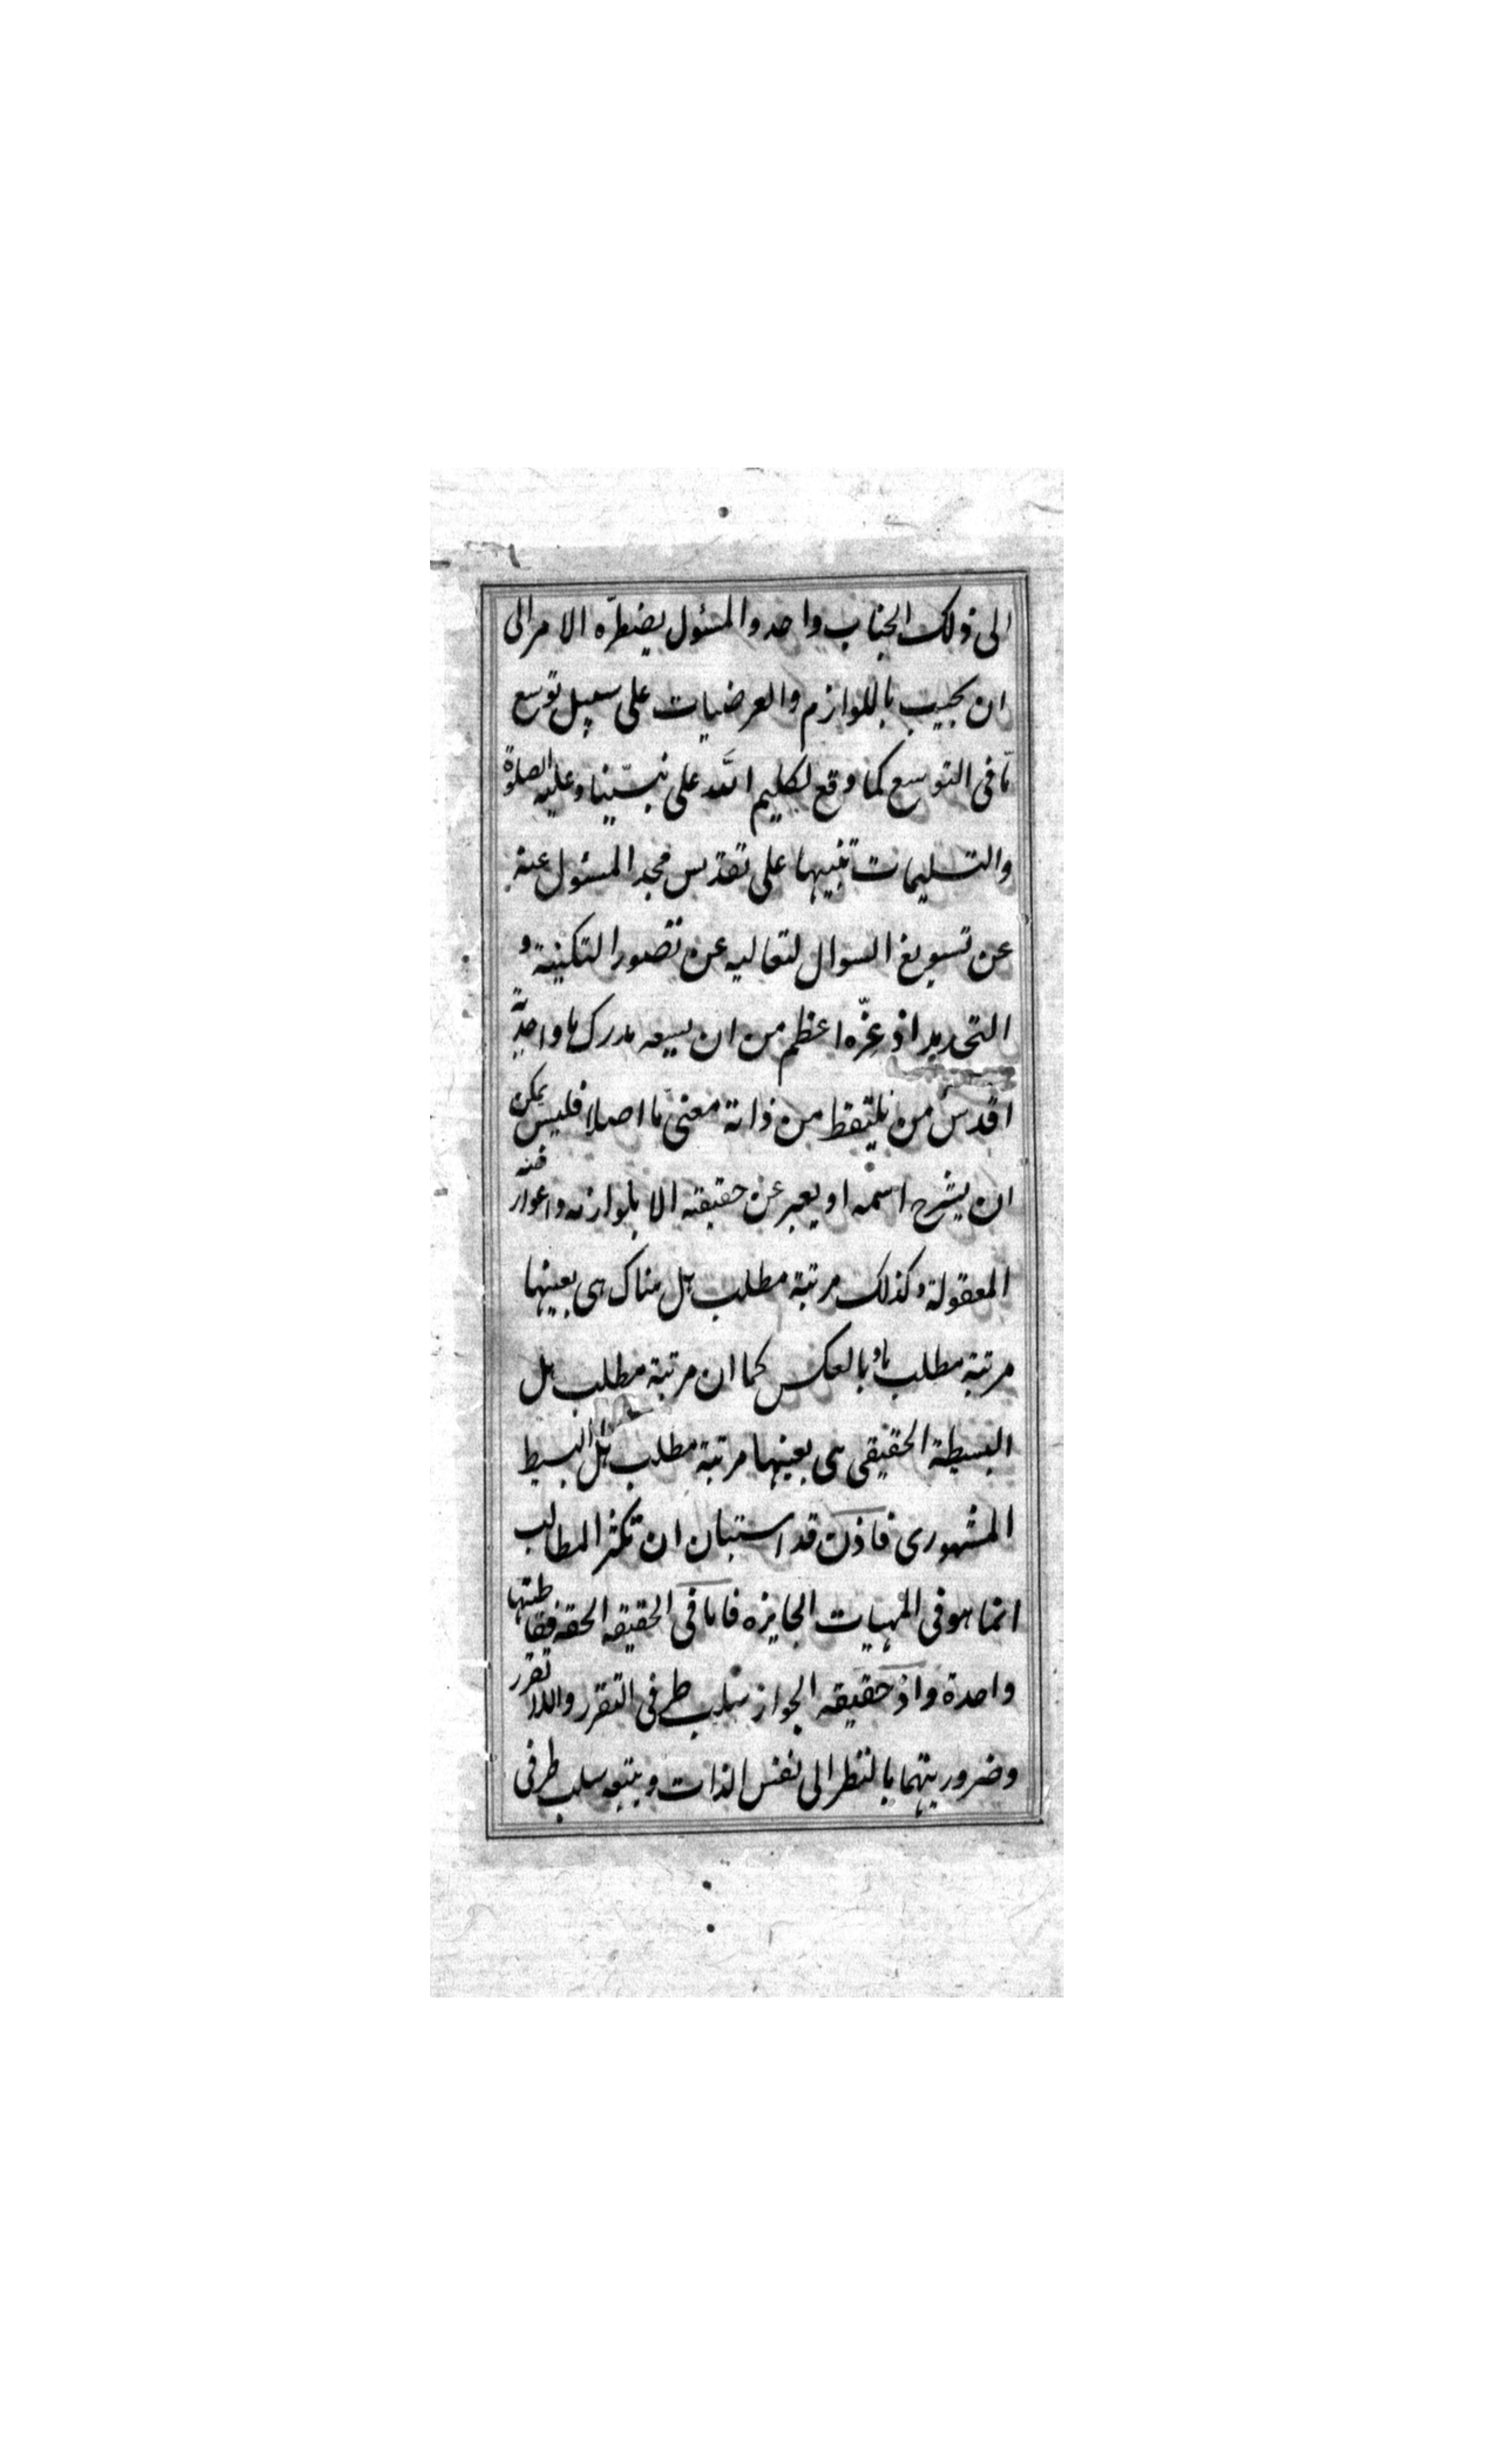 الى ذلك الجناب واحد والمسئول يضطرّه الامر الى
ان يجيب باللوازم والعرضيات على سبيل توسع
مّا فى التوسع كما وقع لكليم اللّه على نبيّنا وعليه الصلوة
والتسليمات تنبيها على تقدّس مجد المسئول عنه
عن تسويغ السوال لتعاليه عن تصور التكنية و
التحديد اذ عزّه اعظم من ان يسعه مدرك ما واحديّته
اقدس من يلتقط من ذاته معنى ما اصلا فليس يمكن
ان يشرح اسمه او يعبر عن حقيقته الا بلوازمه و
المعقولة وكذلك مرتبة مطلب هل هناك هى بعينها
مرتبة مطلب ما وبالعكس كما ان مرتبة مطلب هل
البسيطة الحقيقى هى بعينها مرتبة مطلب هل البسيط
المشهورى فاذن قد استبان ان تكثر المطالب
انما هو فى المهيات الجايزه فاما فى الحقيقه الحقه فقاطبتها
واحدة واذ حقيقه الجواز سلب طرفى التقرر واللا تقرر
وضروريتهما بالنظر الى نفس الذات ويتبعه سلب طرفى